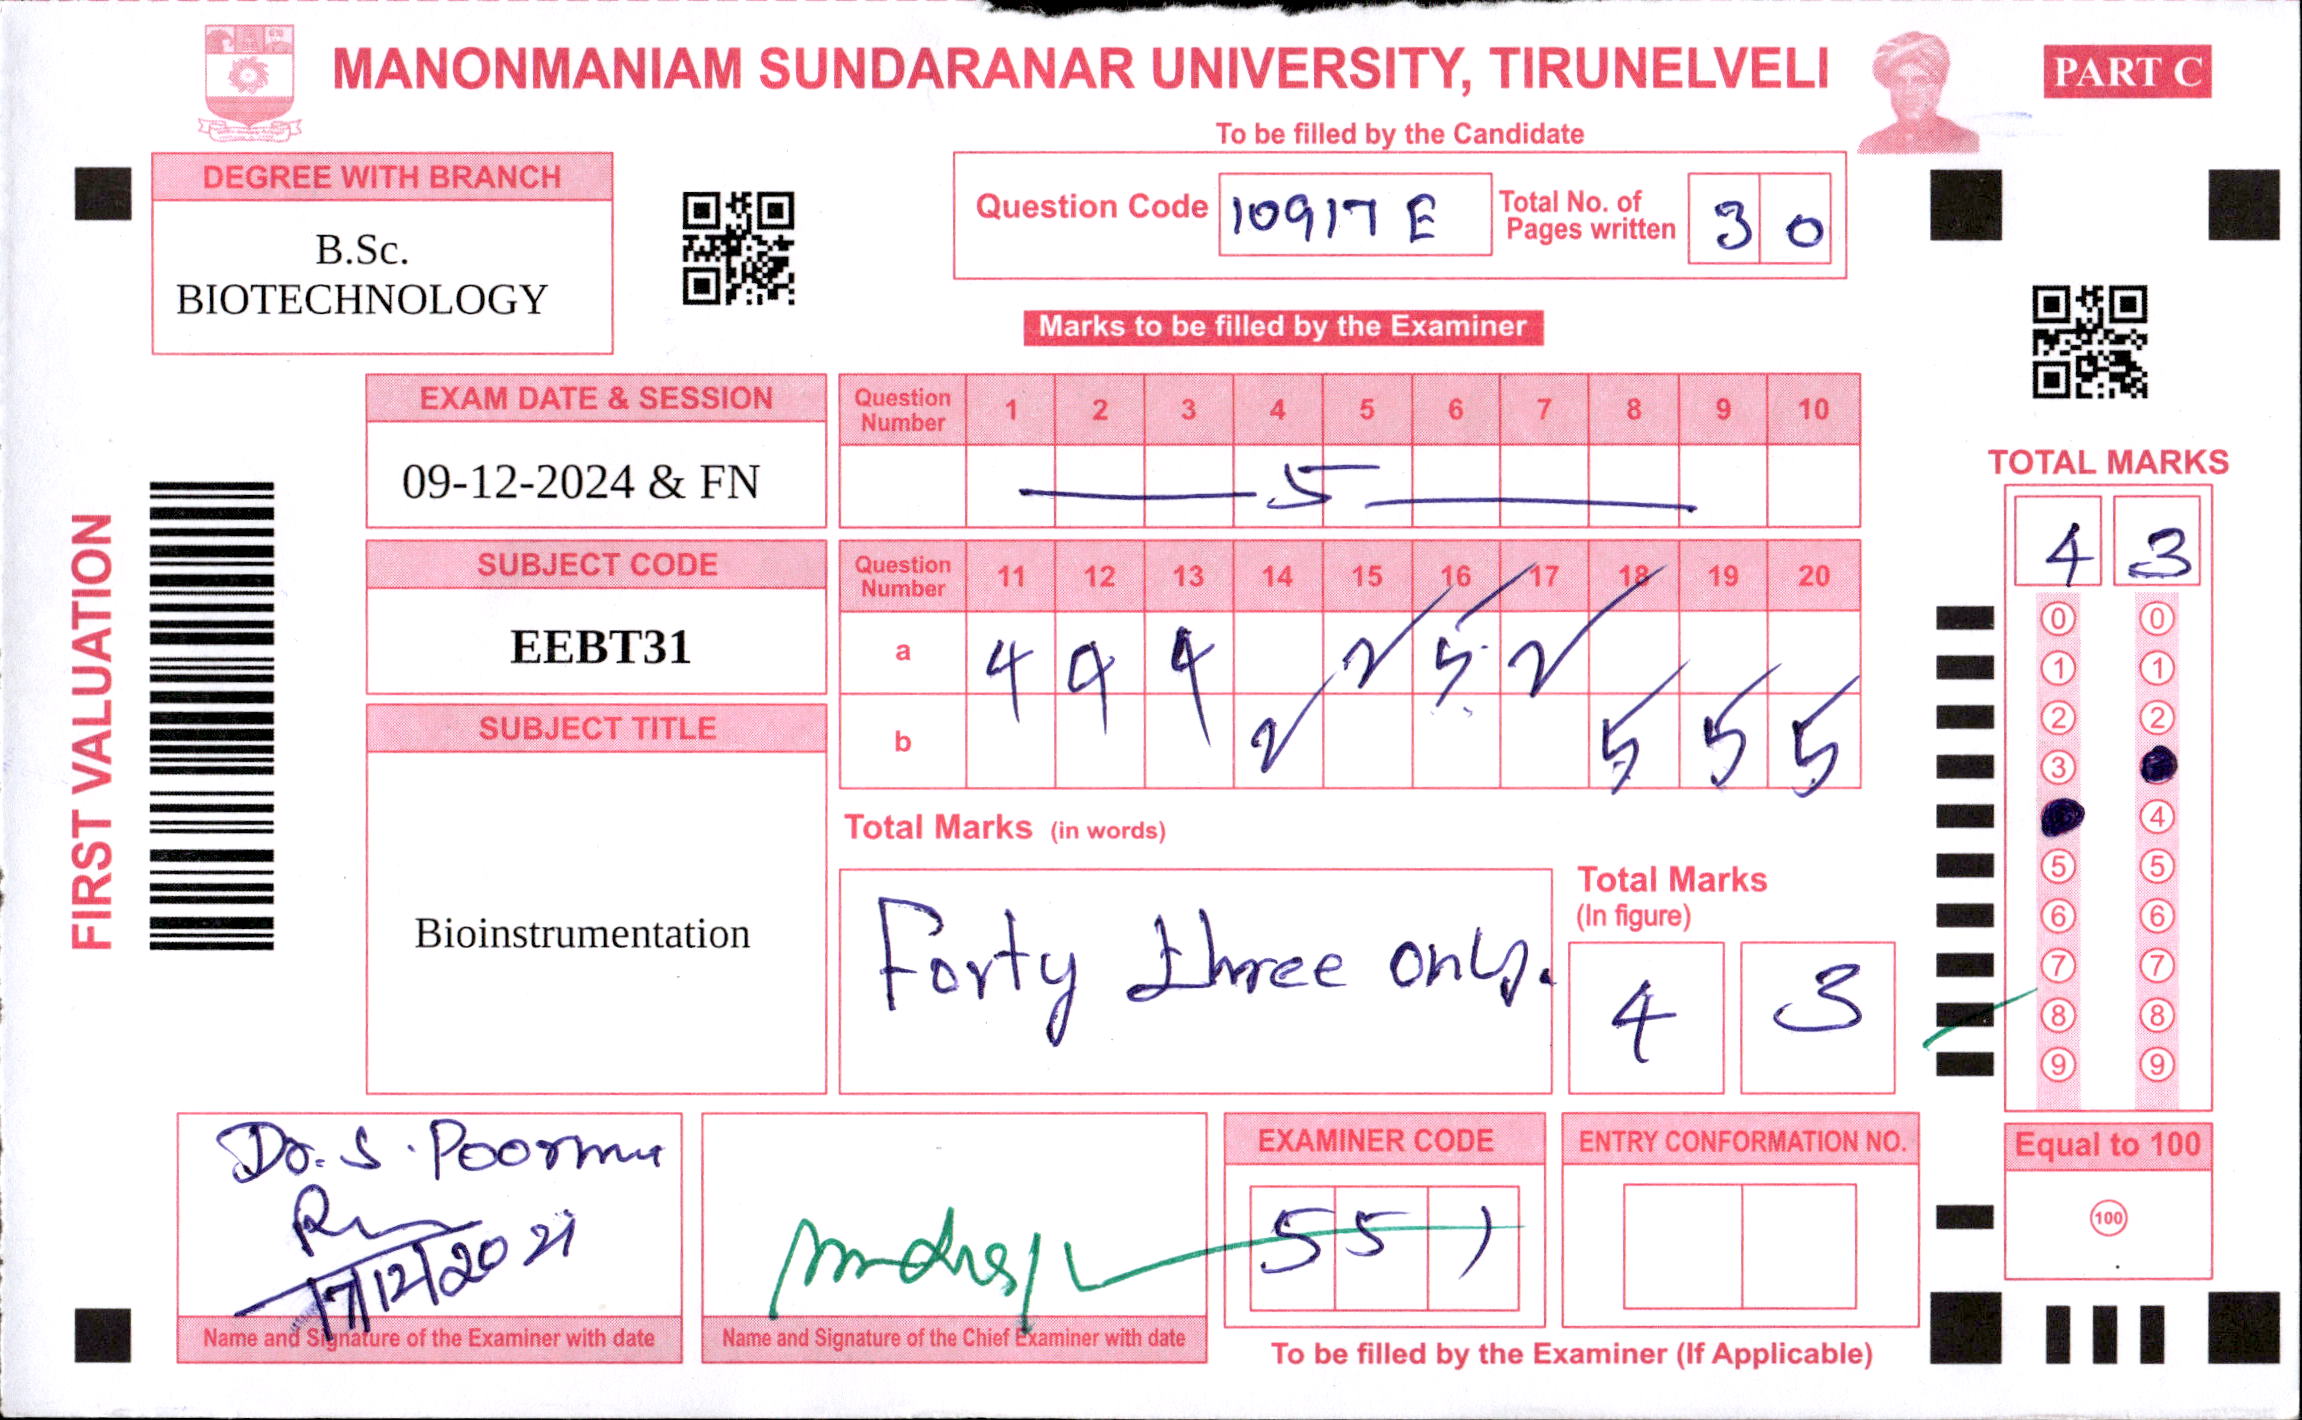 MANONMANIAM SUNDARANAR UNIVERSITY, TIRUNELVELI
PART C
To be filled by the Candidate
DEGREE WITH BRANCH
B.Sc.
BIOTECHNOLOGY
Question Code 10917 E Total No. of Pages written 3 0
Marks to be filled by the Examiner
FIRST VALUATION
EXAM DATE & SESSION
09-12-2024 & FN
SUBJECT CODE
EEBT31
SUBJECT TITLE
Bioinstrumentation
Question Number 1 2 3 4 5 6 7 8 9 10
5
Question Number 11 12 13 14 15 16 17 18 19 20
a 4 4 4 2 5 2
b 2 5 5 5
Total Marks (in words)
Forty three only.
Total Marks
(In figure)
4 3
TOTAL MARKS
4 3
0 0
1 1
2 2
3
4
5 5
6 6
7 7
8 8
9 9
Equal to 100
100
Dr. S. Poorna
Name and Signature of the Examiner with date
Name and Signature of the Chief Examiner with date
EXAMINER CODE
5 5 1
ENTRY CONFORMATION NO.
To be filled by the Examiner (If Applicable)